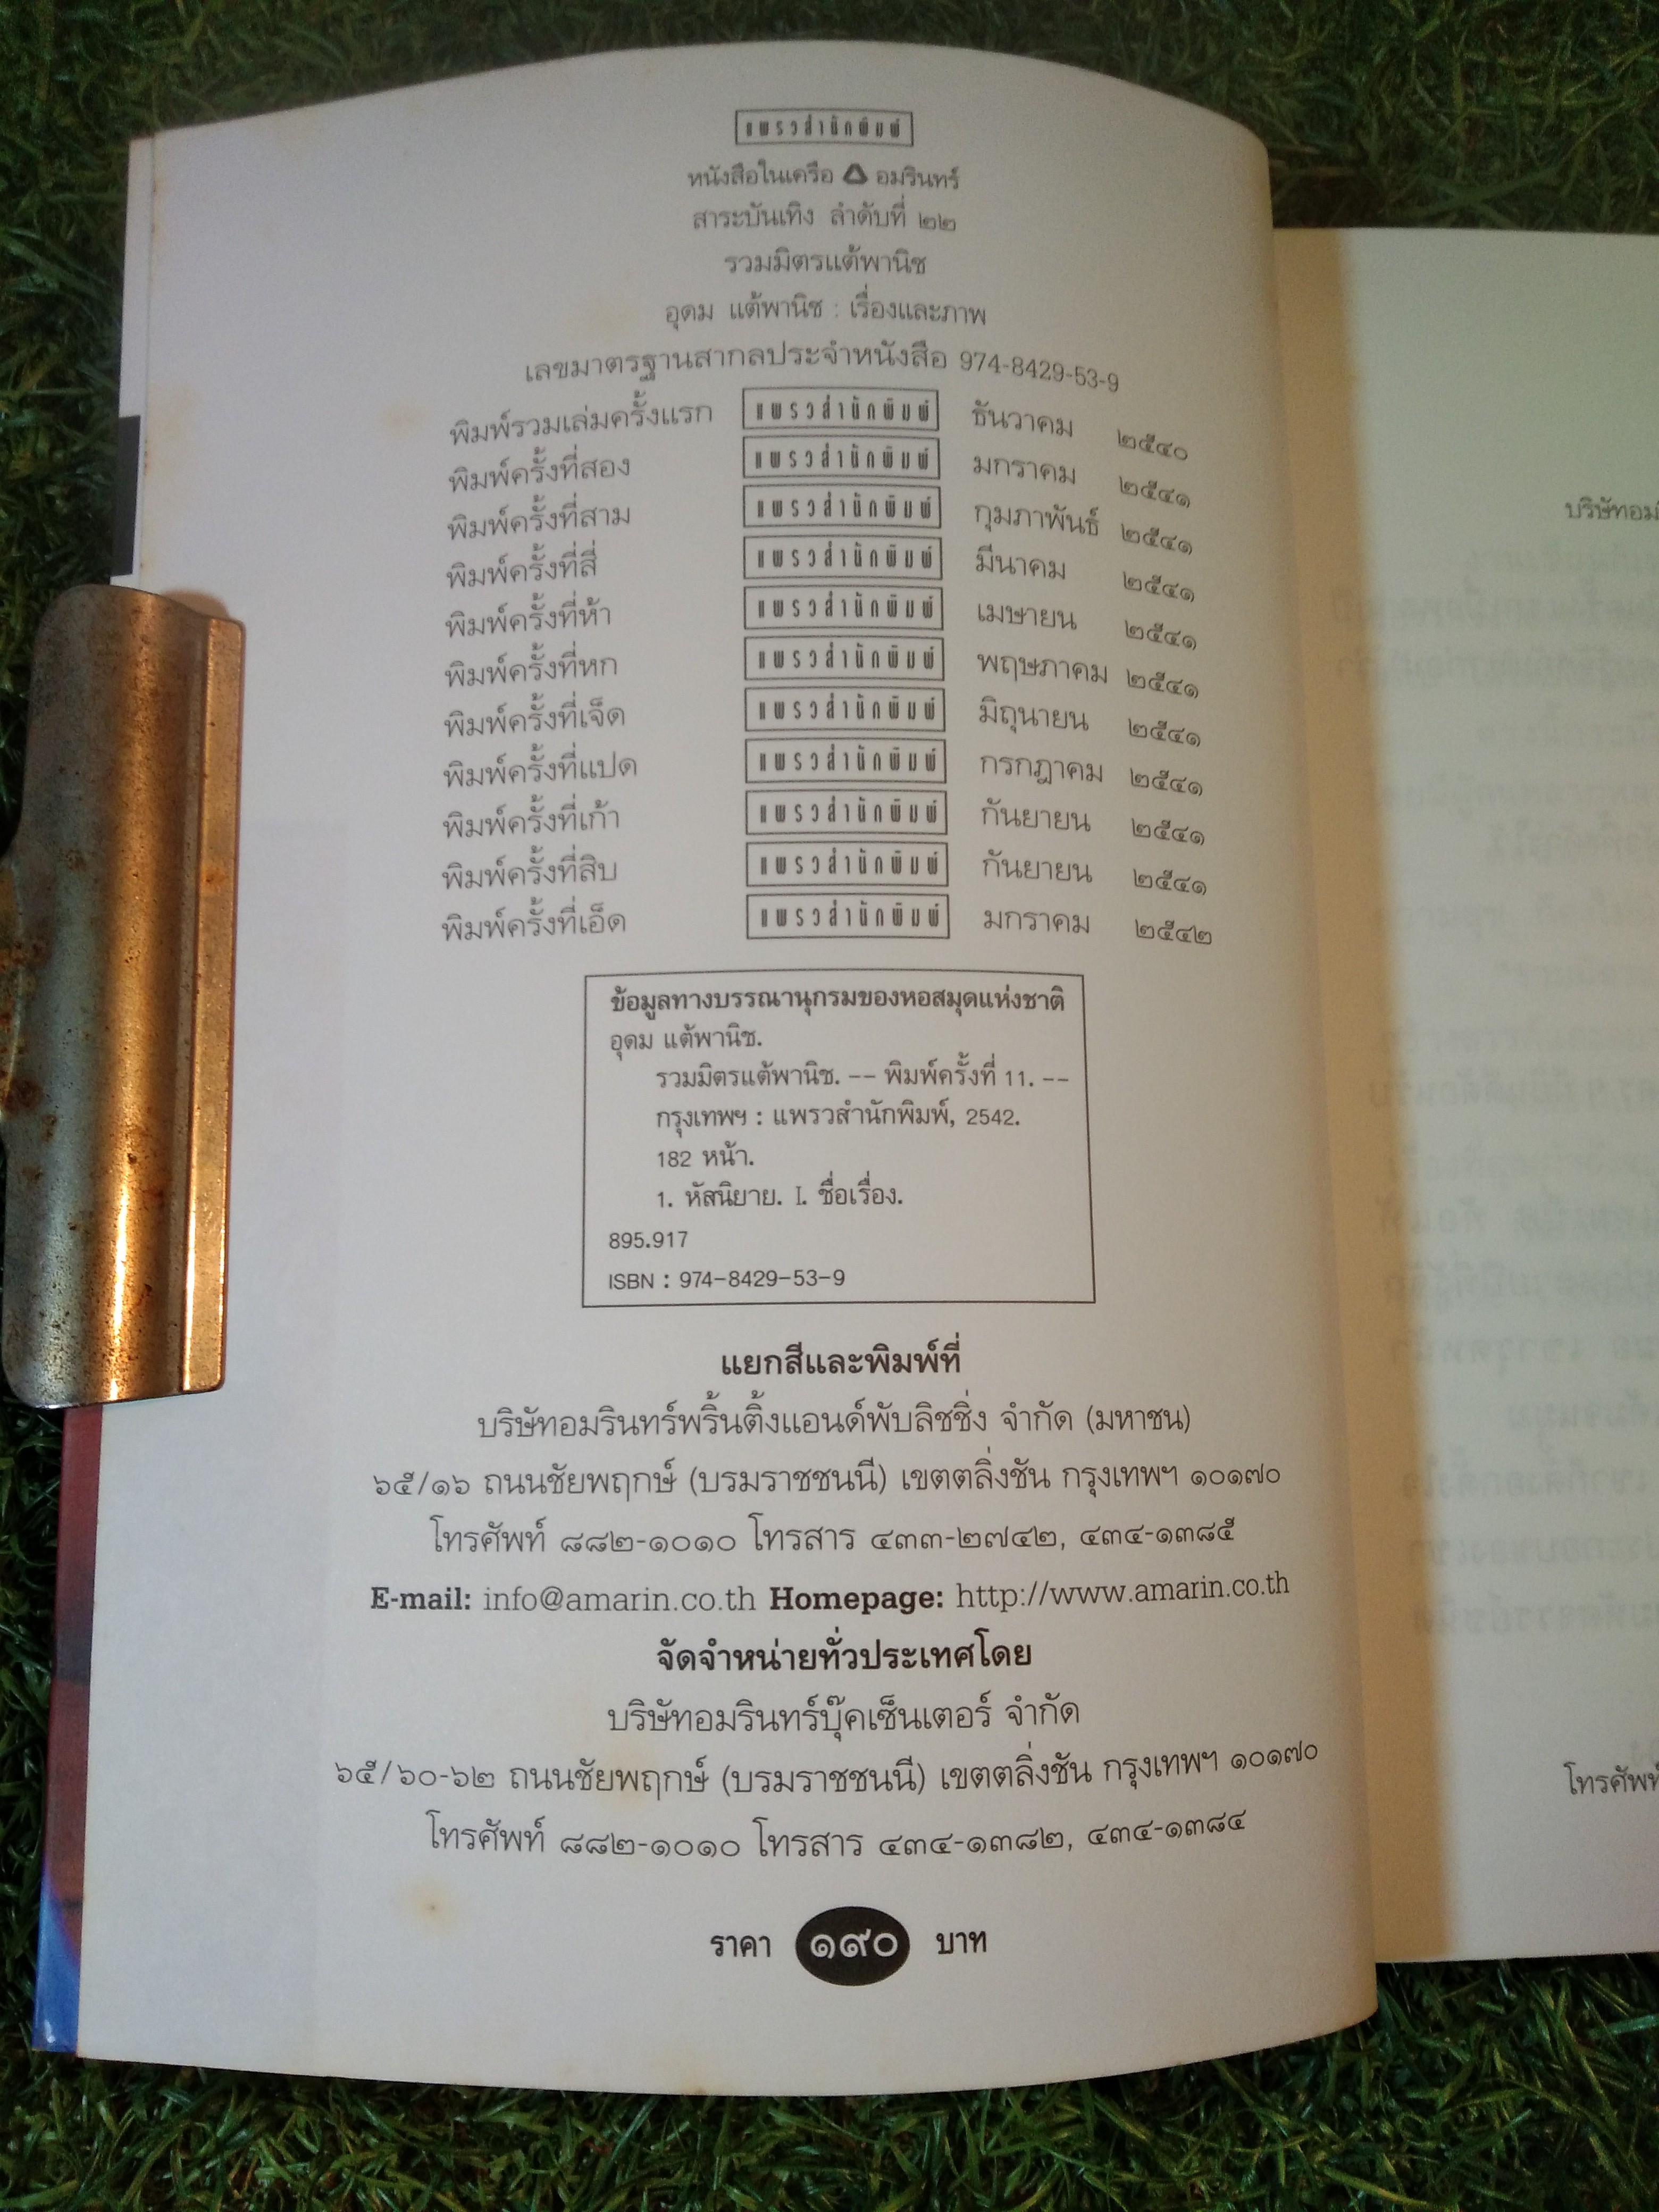 แพรวสำนักพิมพ์
หนังสือในเครือ อมรินทร์
สาระบันเทิง ลำดับที่ ๒๒
รวมมิตรแต้พานิช
อุดม แต้พานิช : เรื่องและภาพ
เลขมาตรฐานสากลประจำหนังสือ 974-8429-53-9
พิมพ์รวมเล่มครั้งแรก แพรวสำนักพิมพ์ ธันวาคม ๒๕๔๐
พิมพ์ครั้งที่สอง แพรวสำนักพิมพ์ มกราคม ๒๕๔๑
พิมพ์ครั้งที่สาม แพรวสำนักพิมพ์ กุมภาพันธ์ ๒๕๔๑
พิมพ์ครั้งที่สี่ แพรวสำนักพิมพ์ มีนาคม ๒๕๔๑
พิมพ์ครั้งที่ห้า แพรวสำนักพิมพ์ เมษายน ๒๕๔๑
พิมพ์ครั้งที่หก แพรวสำนักพิมพ์ พฤษภาคม ๒๕๔๑
พิมพ์ครั้งที่เจ็ด แพรวสำนักพิมพ์ มิถุนายน ๒๕๔๑
พิมพ์ครั้งที่แปด แพรวสำนักพิมพ์ กรกฎาคม ๒๕๔๑
พิมพ์ครั้งที่เก้า แพรวสำนักพิมพ์ กันยายน ๒๕๔๑
พิมพ์ครั้งที่สิบ แพรวสำนักพิมพ์ กันยายน ๒๕๔๑
พิมพ์ครั้งที่เอ็ด แพรวสำนักพิมพ์ มกราคม ๒๕๔๒
ข้อมูลทางบรรณานุกรมของหอสมุดแห่งชาติ
อุดม แต้พานิช.
รวมมิตรแต้พานิช. -- พิมพ์ครั้งที่ 11. --
กรุงเทพฯ : แพรวสำนักพิมพ์, 2542.
182 หน้า.
1. หัสนิยาย. I. ชื่อเรื่อง.
895.917
ISBN : 974-8429-53-9
แยกสีและพิมพ์ที่
บริษัทอมรินทร์พริ้นติ้งแอนด์พับลิชชิ่ง จำกัด (มหาชน)
๖๕/๑๖ ถนนชัยพฤกษ์ (บรมราชชนนี) เขตตลิ่งชัน กรุงเทพฯ ๑๐๑๗๐
โทรศัพท์ ๘๘๒-๑๐๑๐ โทรสาร ๔๓๓-๒๗๔๒, ๔๓๔-๑๓๘๕
E-mail: info@amarin.co.th Homepage: http://www.amarin.co.th
จัดจำหน่ายทั่วประเทศโดย
บริษัทอมรินทร์บุ๊คเซ็นเตอร์ จำกัด
๖๕/๖๐-๖๒ ถนนชัยพฤกษ์ (บรมราชชนนี) เขตตลิ่งชัน กรุงเทพฯ ๑๐๑๗๐
โทรศัพท์ ๘๘๒-๑๐๑๐ โทรสาร ๔๓๔-๑๓๘๒, ๔๓๔-๑๓๘๔
ราคา ๑๙๐ บาท
โทรศัพท์